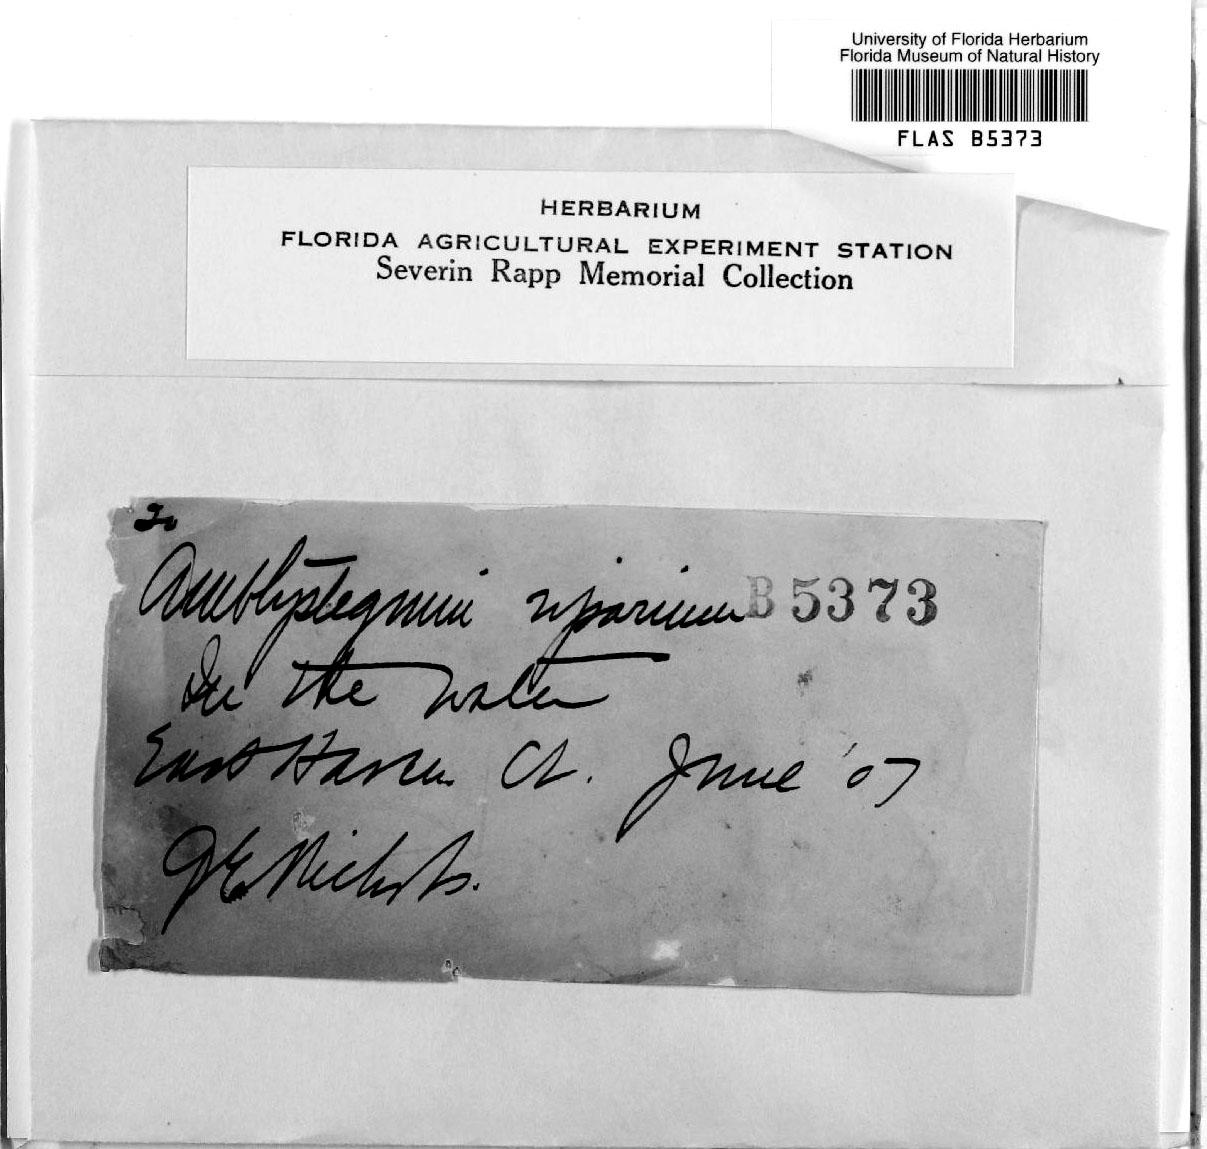 University of Florida Herbarium
Florida Museum of Natural History
FLAS B5373
HERBARIUM
FLORIDA AGRICULTURAL EXPERIMENT STATION
Severin Rapp Memorial Collection
Amblystegium riparium B5373
In the water
East Haven Ct. June '07
GE Nichols.